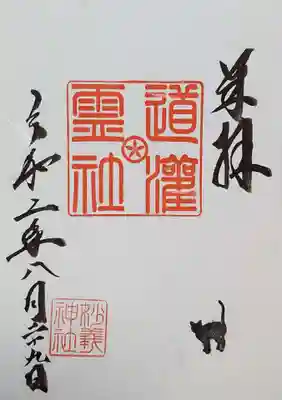 奉拝
道灌
霊社
令和二年八月二十九日
妙義
神社